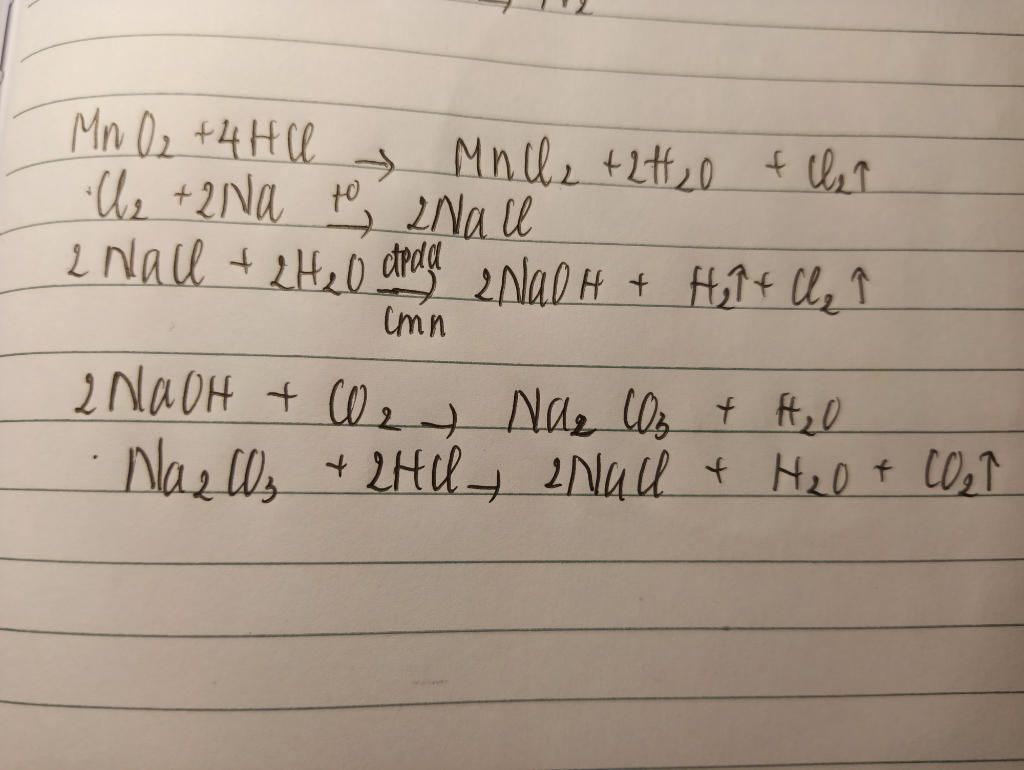 MnO₂ + 4HCl → MnCl₂ + 2H₂O + Cl₂↑
Cl₂ + 2Na t⁰→ 2NaCl
2NaCl + 2H₂O đpdd→ 2NaOH + H₂↑ + Cl₂↑
cmn
2NaOH + CO₂ → Na₂CO₃ + H₂O
Na₂CO₃ + 2HCl → 2NaCl + H₂O + CO₂↑